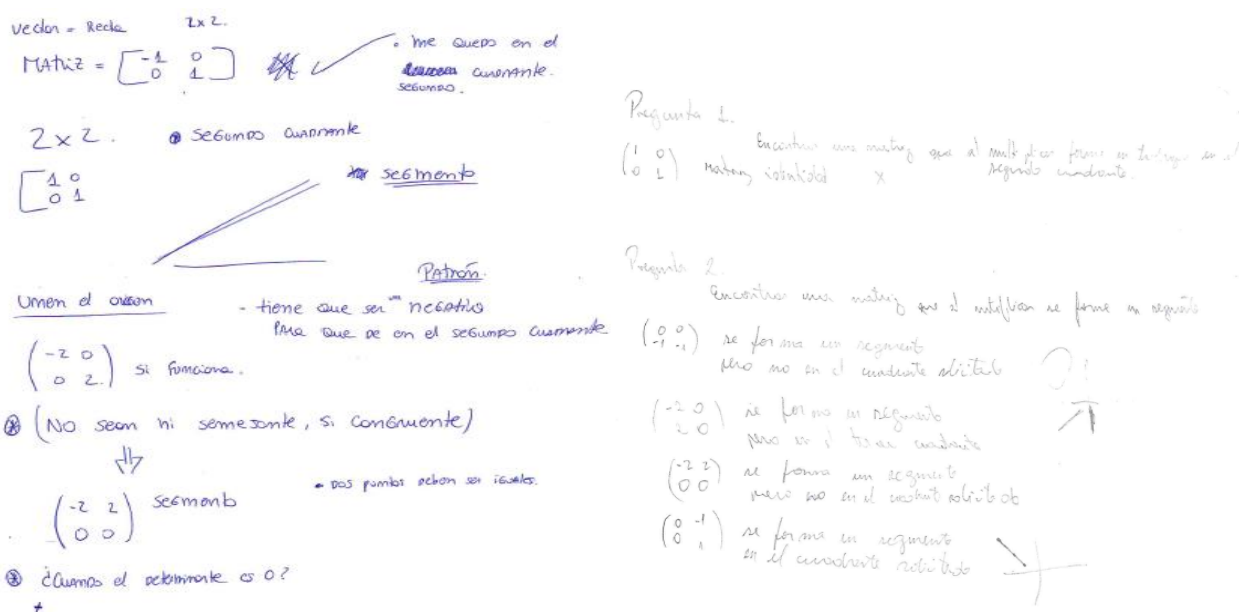 Vector = Recta 2x2.
Matriz = [-1 0
0 1]
• me quedo en el
cuadrante.
segundo.
2x2. • Segundo cuadrante
[1 0
0 1
segmento
Patrón.
Unen el origen
- tiene que ser un negativo
para que de en el segundo cuadrante
(-2 0
0 2) si funciona.
(No sean ni semejante, si congruente)
⇓
(-2 2
0 0) segmento
• Dos puntos deben ser iguales.
¿Cuando el determinante es 0?
Pregunta 1.
Encontrar una matriz que al multiplicar forme un triángulo en el
segundo cuadrante.
(1 0
0 1) matriz identidad x
Pregunta 2.
Encontrar una matriz que al multiplicar se forme un segmento
(0 0
-1 -1) se forma un segmento
pero no en el cuadrante solicitado
(-2 0
2 0) se forma un segmento
pero en el cuadrante
(-2 2
0 0) se forma un segmento
pero no en el cuadrante solicitado
(0 -1
0 1) se forma un segmento
en el cuadrante solicitado